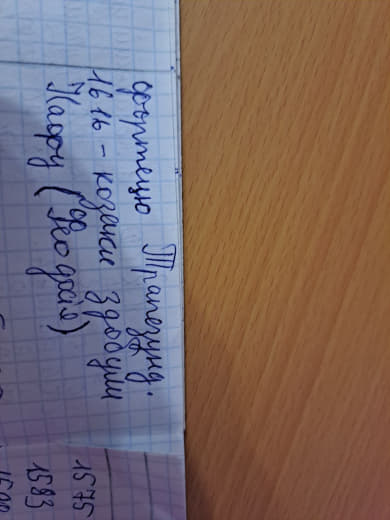 фортецю Трапезунд.
1616 - козаки здобули
Кафу (Феодосія)
1575
1583